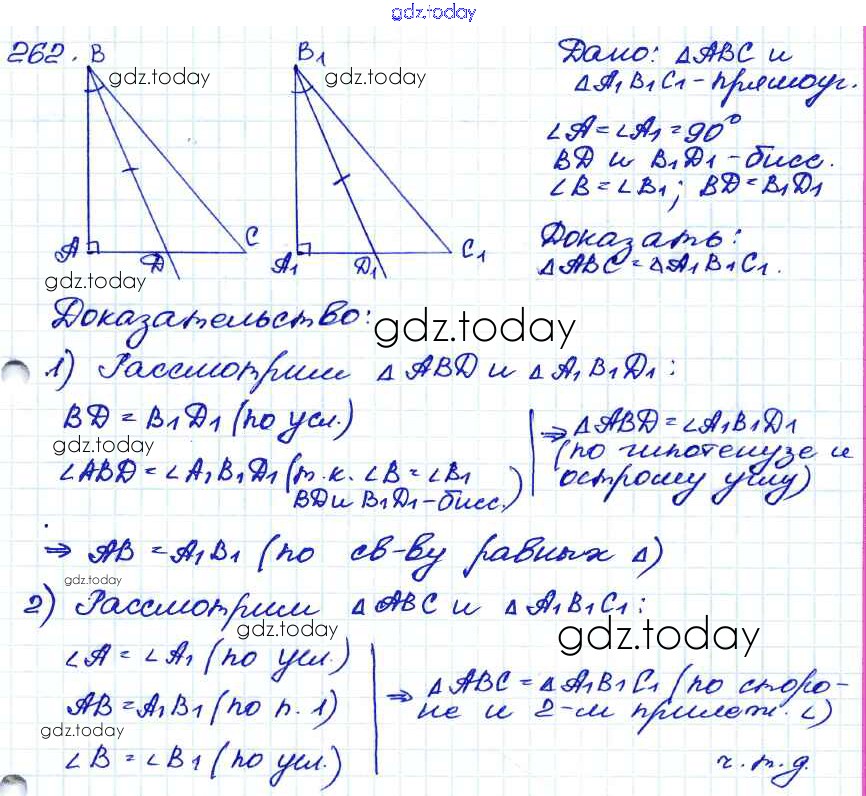 gdz.today
262.
B
gdz.today
A
D
C
gdz.today
B1
gdz.today
A1
D1
C1
Дано: △ABC и
△A1B1C1-прямоуг.
∠A=∠A1=90°
BD и B1D1-бисс.
∠B=∠B1; BD=B1D1
Доказать:
△ABC=△A1B1C1.
Доказательство:
gdz.today
1) Рассмотрим △ABD и △A1B1D1:
BD = B1D1 (по усл.)
gdz.today
∠ABD = ∠A1B1D1 (т.к. ∠B = ∠B1
BD и B1D1-бисс.)
⇒ △ABD = ∠A1B1D1
(по гипотенузе и
острому углу)
⇒ AB = A1B1 (по св-ву равных △)
gdz.today
2) Рассмотрим △ABC и △A1B1C1:
gdz.today
gdz.today
∠A = ∠A1 (по усл.)
AB=A1B1 (по п. 1)
gdz.today
∠B = ∠B1 (по усл.)
⇒ △ABC = △A1B1C1 (по сторо-
не и 2-м прилеж. ∠)
ч.т.д.